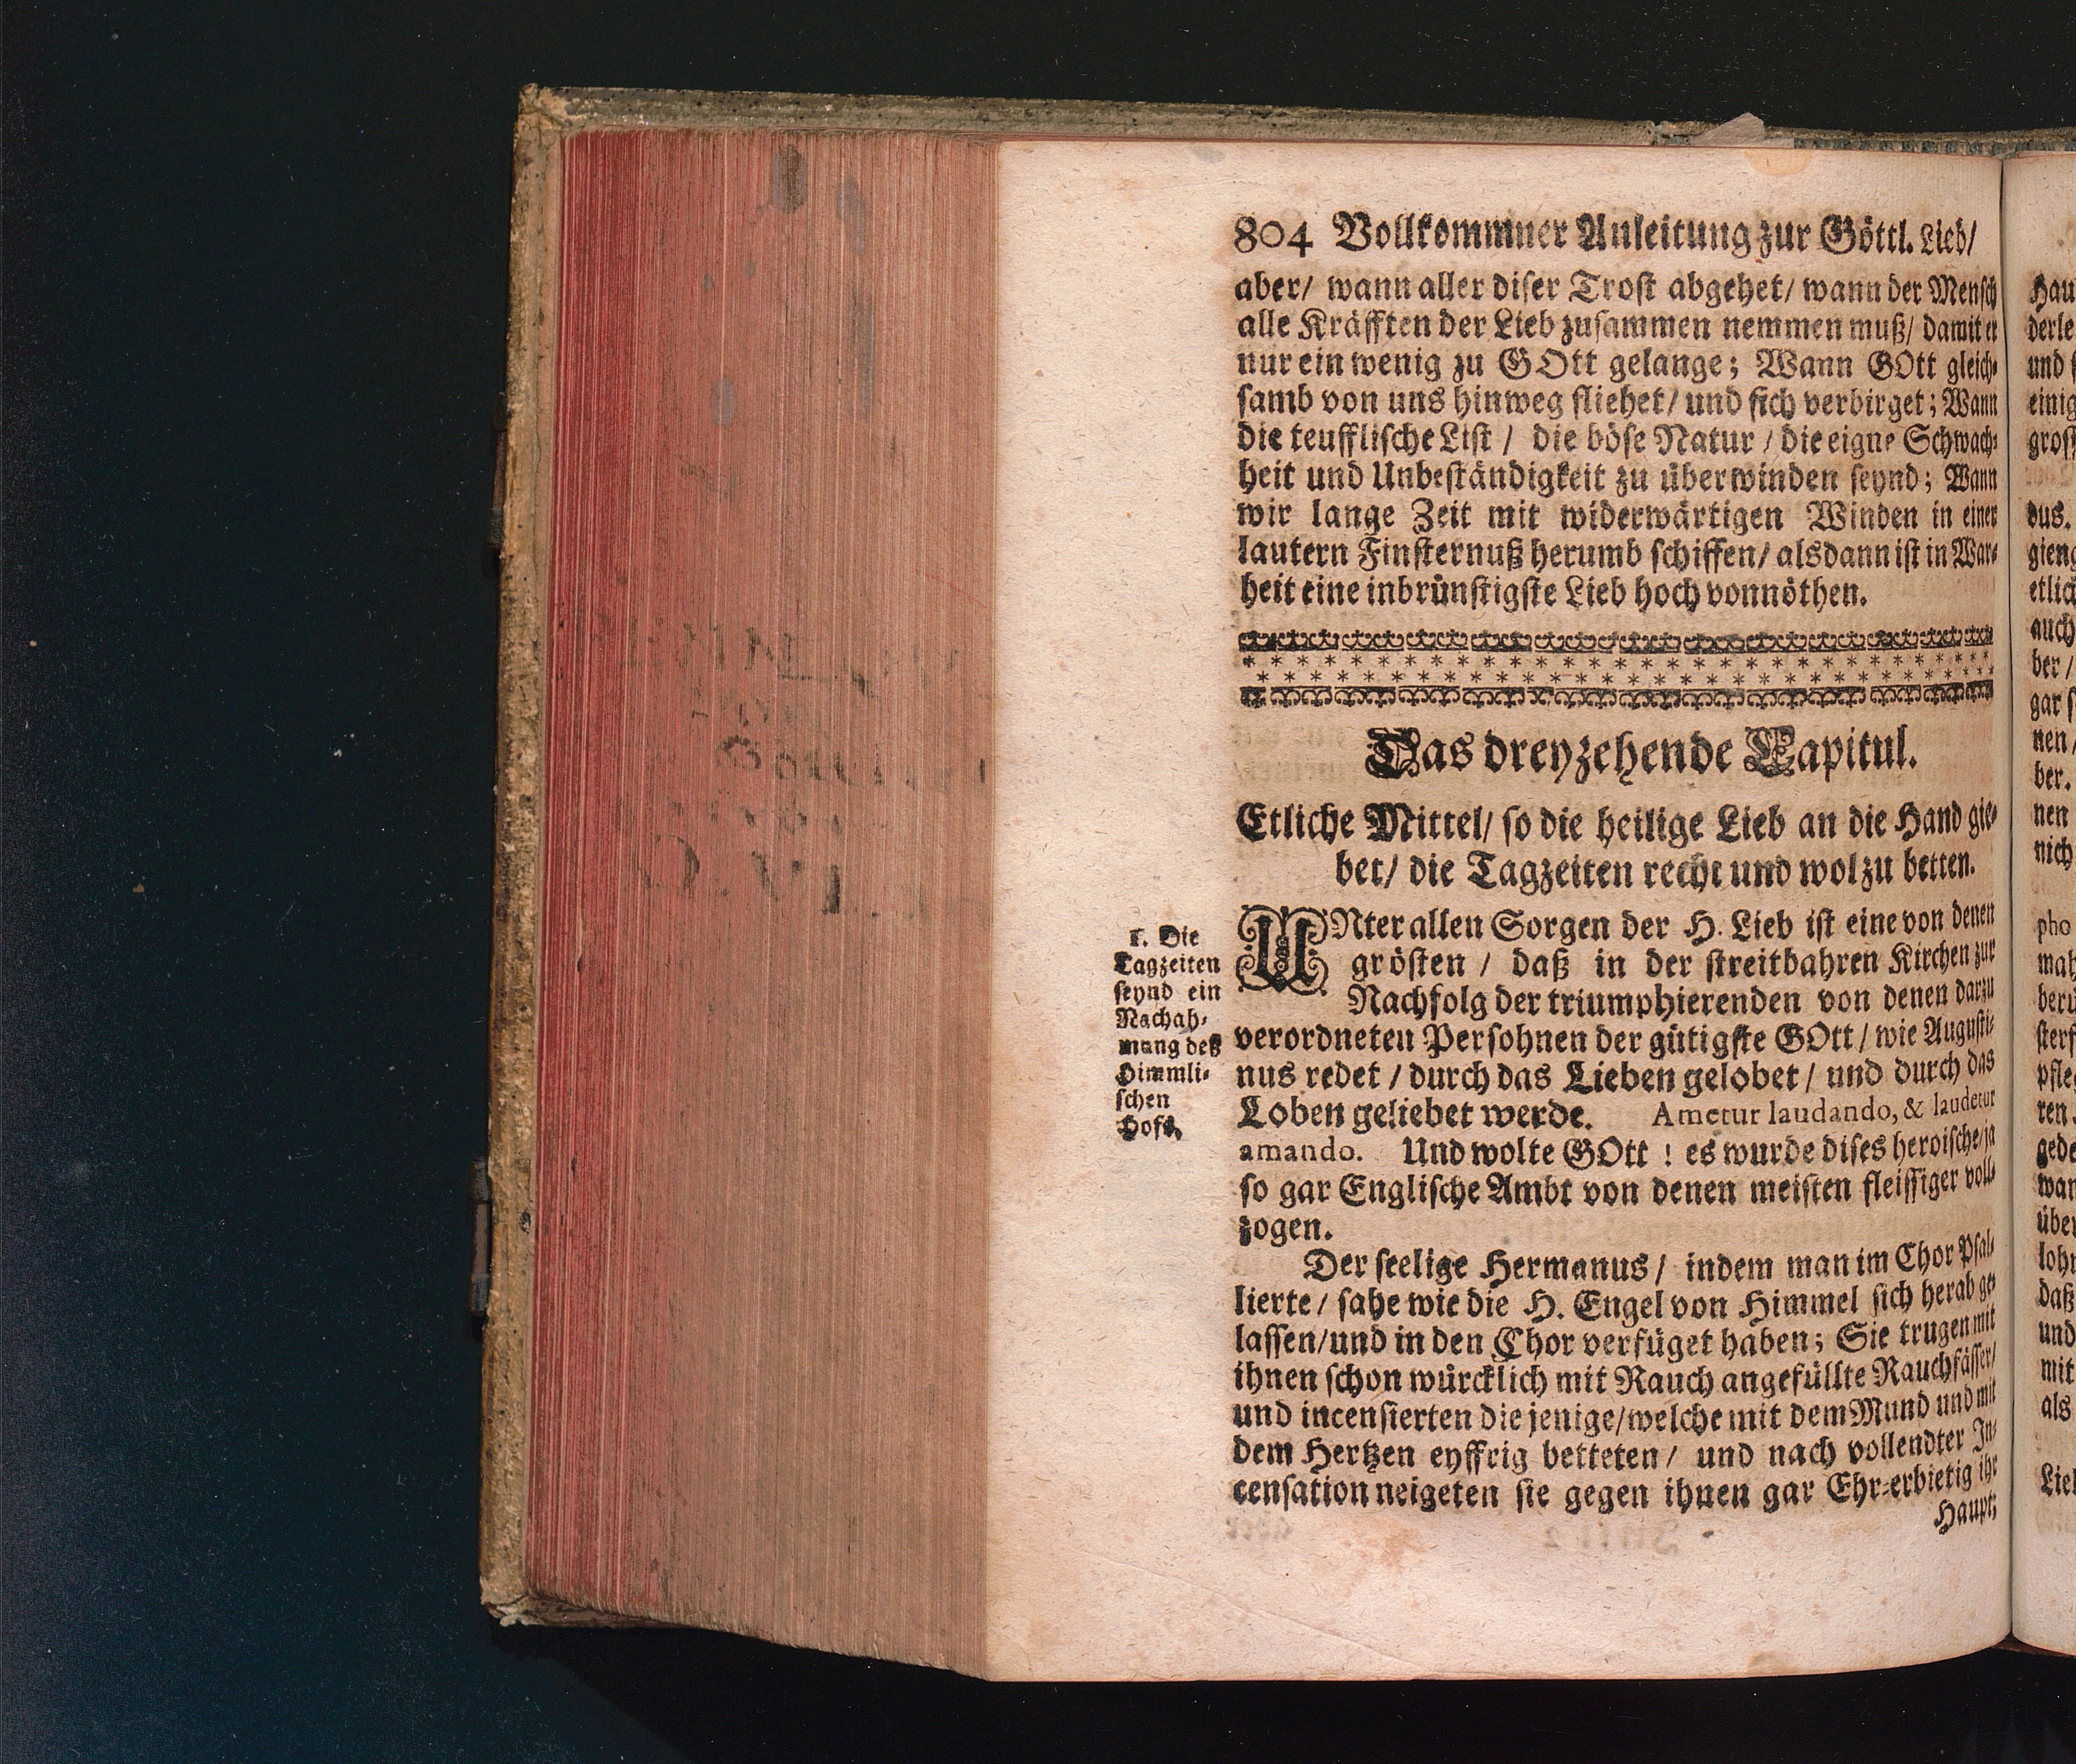 804 Vollkommner Anleitung zur Göttl. Lieb/
aber/ wann aller diser Trost abgehet/ wann der Mensch
alle Kräfften der Lieb zusammen nemmen muß/ damit er
nur ein wenig zu GOtt gelange; Wann GOtt gleich-
samb von uns hinweg fliehet/ und sich verbirget; Wann
die teufflische List / die böse Natur / die eigne Schwach-
heit und Unbeständigkeit zu überwinden seynd; Wann
wir lange Zeit mit widerwärtigen Winden in einer
lautern Finsternuß herumb schiffen/ alsdann ist in War-
heit eine inbrünstigste Lieb hoch vonnöthen.
Das dreyzehende Capitul.
Etliche Mittel/ so die heilige Lieb an die Hand gie-
bet/ die Tagzeiten recht und wol zu betten.
1. Die
Tagzeiten
seynd ein
Nachah-
mung deß
Himmli-
schen
Hofs.
UNter allen Sorgen der H. Lieb ist eine von denen
grösten / daß in der streitbahren Kirchen zur
Nachfolg der triumphierenden von denen darzu
verordneten Persohnen der gütigste GOtt / wie Augusti-
nus redet / durch das Lieben gelobet / und durch das
Loben geliebet werde. Ametur laudando, & laudetur
amando. Und wolte GOtt ! es wurde dises heroische/ ja
so gar Englische Ambt von denen meisten fleissiger voll-
zogen.
Der seelige Hermanus / indem man im Chor Psal-
lierte / sahe wie die H. Engel von Himmel sich herab ge-
lassen/ und in den Chor verfüget haben; Sie trugen mit
ihnen schon würcklich mit Rauch angefüllte Rauchfässer/
und incensierten die jenige/ welche mit dem Mund und mit
dem Hertzen eyffrig betteten / und nach vollendter In-
censation neigeten sie gegen ihnen gar Ehr-erbietig ihr
Haupt;
Hau
derle
und
einig
dus.
gieng
auch
ber /
gar
nen
ber.
nen
nich
pho
mah
ren.
gede
daß
und
mit
als